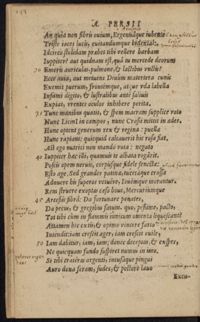 A. PERSII
An quia non fibris ovium, Ergennáque iubente
Triste iaces lucis, evitandumque bidental:
Idcirco stolidam præbet tibi vellere barbam
Iuppiter? aut quidnam est, qua tu mercede deorum
30 Emeris auriculas? pulmone, & lactibus unctis?
Ecce avia, aut metuens Divum matertera cunis
Exemit puerum, frontémque, atque uda labella
Infami digito, & lustralibus ante salivis
Expiat, urentes oculos inhibere perita.
35 Tunc manibus quatit, & spem macram supplice voto
Nunc Licini in campos, nunc Crassi mittit in ædes.
Hunc optent generum rex & regina: puellæ
Hunc rapiant: quicquid calcaverit hic rosa fiat.
Ast ego nutrici non mando vota: negato
40 Iuppiter hæc illi, quamvis te albata rogarit.
Poscis opem nervis, corpúsque fidele senectæ:
Esto age. Sed grandes patinæ, tucetáque crassa
Adnuere his superos vetuere, Iovémque morantur.
Rem struere exoptas cæso bove, Mercuriúmque
45 Arcessis fibra: Da fortunare penates,
Da pecus, & gregibus fœtum. quo, pessime, pacto,
Tot tibi cum in flammis iunicum omenta liquescant?
Attamen hic extis, & opimo vincere farto
Intendit: iam crescit ager, iam crescit ovile,
50 Iam dabitur, iam, iam; donec deceptus, & exspes,
Nequicquam fundo suspiret nummus in imo.
Si tibi crateras argenti, incusáque pingui
Auro dona feram, sudes, & pectore lævo
Excu-